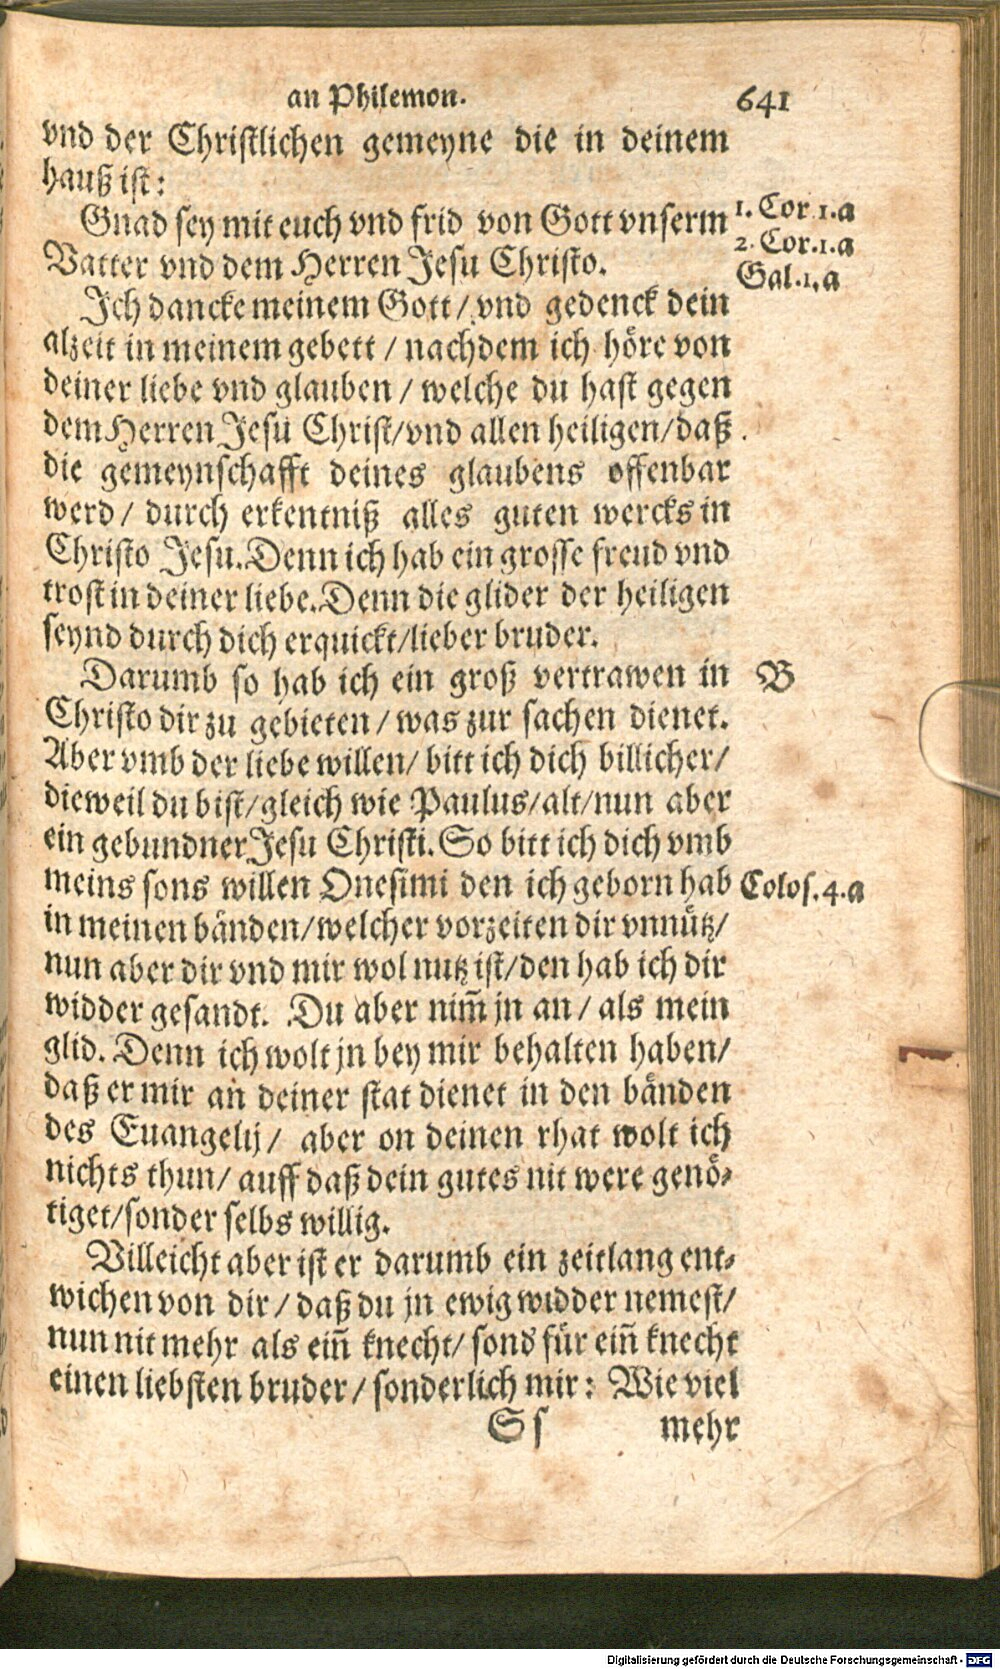 an Philemon. 641
vnd der Christlichen gemeyne die in deinem
hauß ist:
Gnad sey mit euch vnd frid von Gott vnserm
1. Cor. 1. a
2. Cor. 1. a
Gal. 1. a
Vatter vnd dem Herren Jesu Christo.
Ich dancke meinem Gott / vnd gedenck dein
alzeit in meinem gebett / nachdem ich höre von
deiner liebe vnd glauben / welche du hast gegen
dem Herren Jesu Christ/vnd allen heiligen/daß
die gemeynschafft deines glaubens offenbar
werd / durch erkentniß alles guten wercks in
Christo Jesu. Denn ich hab ein grosse freud vnd
trost in deiner liebe. Denn die glider der heiligen
seynd durch dich erquickt/lieber bruder.
Darumb so hab ich ein groß vertrawen in
B
Christo dir zu gebieten / was zur sachen dienet.
Aber vmb der liebe willen/ bitt ich dich billicher/
dieweil du bist/gleich wie Paulus/alt/nun aber
ein gebundner Jesu Christi. So bitt ich dich vmb
meins sons willen Onesimi den ich geborn hab
Colos. 4. a
in meinen bänden/welcher vorzeiten dir vnnütz/
nun aber dir vnd mir wol nutz ist/den hab ich dir
widder gesandt. Du aber nim̃ jn an / als mein
glid. Denn ich wolt jn bey mir behalten haben/
daß er mir an deiner stat dienet in den bänden
des Euangelij/ aber on deinen rhat wolt ich
nichts thun/ auff daß dein gutes nit were genö-
tiget/sonder selbs willig.
Villeicht aber ist er darumb ein zeitlang ent-
wichen von dir / daß du jn ewig widder nemest/
nun nit mehr als ein̄ knecht/ sond für ein̄ knecht
einen liebsten bruder / sonderlich mir: Wie viel
S s mehr
Digitalisierung gefördert durch die Deutsche Forschungsgemeinschaft - DFG